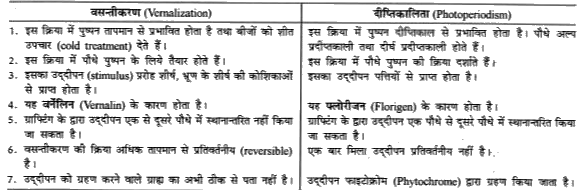 वसन्तीकरण (Vernalization) दीप्तिकालिता (Photoperiodism)
1. इस क्रिया में पुष्पन तापमान से प्रभावित होता है तथा बीजों को शीत इस क्रिया में पुष्पन दीप्तिकाल से प्रभावित होता है। पौधे अल्प
उपचार (cold treatment) देते हैं। प्रदीप्तकाली तथा दीर्घ प्रदीप्तकाली होते हैं।
2. इस क्रिया में पौधे पुष्पन के लिये तैयार होते हैं। इस क्रिया में पौधे पुष्पन की क्रिया दर्शाते हैं।
3. इसका उद्दीपन (stimulus) प्ररोह शीर्ष, भ्रूण के शीर्ष की कोशिकाओं इसका उद्दीपन पत्तियों से प्राप्त होता है।
से प्राप्त होता है।
4. यह वर्नेलिन (Vernalin) के कारण होता है। यह फ्लोरीजन (Florigen) के कारण होता है।
5. ग्राफ्टिंग के द्वारा उद्दीपन एक से दूसरे पौधे में स्थानान्तरित नहीं किया ग्राफ्टिंग के द्वारा उद्दीपन एक पौधे से दूसरे पौधे में स्थानान्तरित किया
जा सकता है। जा सकता है।
6. वसन्तीकरण की क्रिया अधिक तापमान से प्रतिवर्तनीय (reversible) एक बार मिला उद्दीपन प्रतिवर्तनीय नहीं है।
है।
7. उद्दीपन को ग्रहण करने वाले ग्राह्य का अभी ठीक से पता नहीं है। उद्दीपन फाइटोक्रोम (Phytochrome) द्वारा ग्रहण किया जाता है।